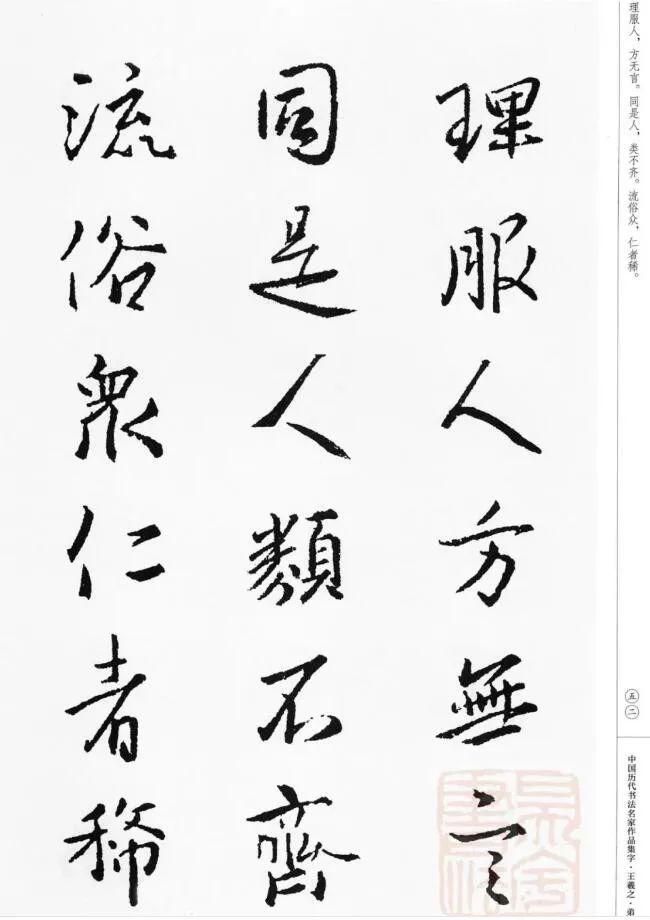 理服人方無言
同是人類不齊
流俗衆仁者稀
理服人，方无言。同是人，类不齐。流俗众，仁者稀。
五二
中国历代书法名家作品集字·王羲之·弟